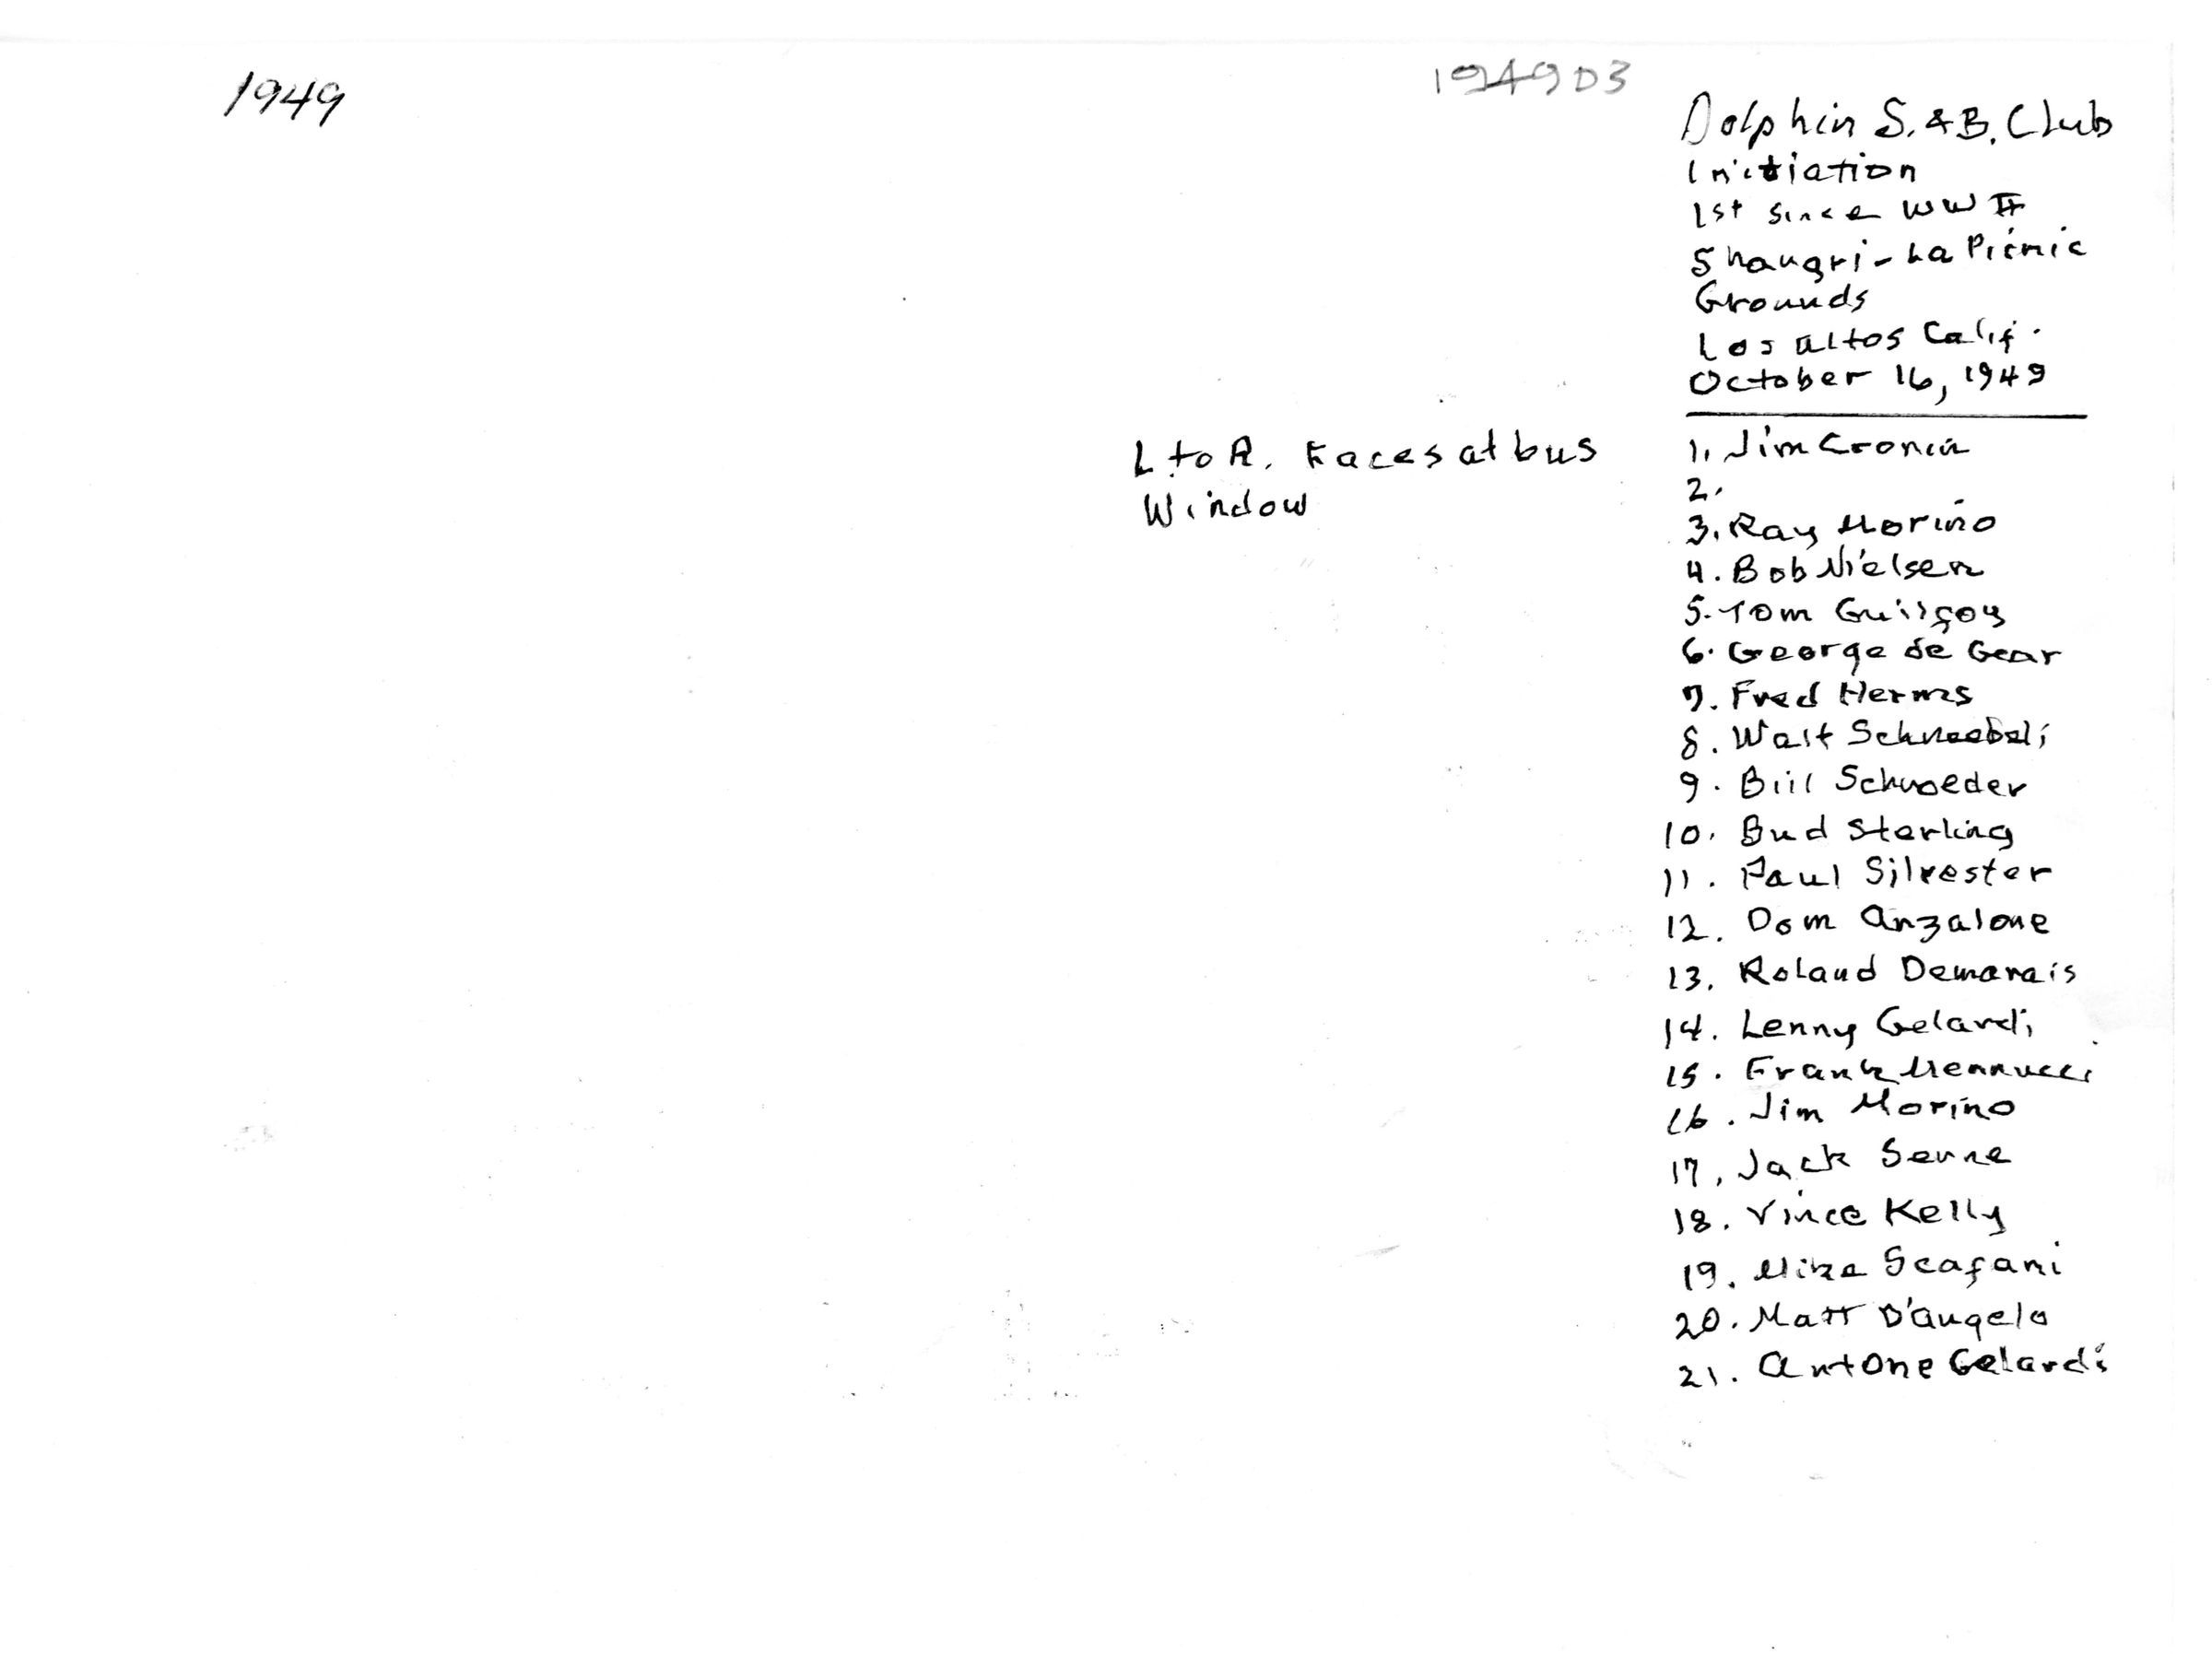 1949
1949D3
Dolphin S. & B. Club
Initiation
1st Since WW II
Shangri-La Picnic
Grounds
Los Altos Calif.
October 16, 1949
L to R. Faces at bus
Window
1. Jim Cronin
2.
3. Ray Morino
4. Bob Nielsen
5. Tom Guilfoy
6. George de Gear
7. Fred Herms
8. Walt Schneebeli
9. Bill Schroeder
10. Bud Sterling
11. Paul Silvester
12. Dom Anzalone
13. Roland Demarais
14. Lenny Gelardi
15. Frank Mennucci
16. Jim Morino
17. Jack
18. Vince Kelly
19. Mike Scafani
20. Matt D'Angelo
21. Antone Gelardi